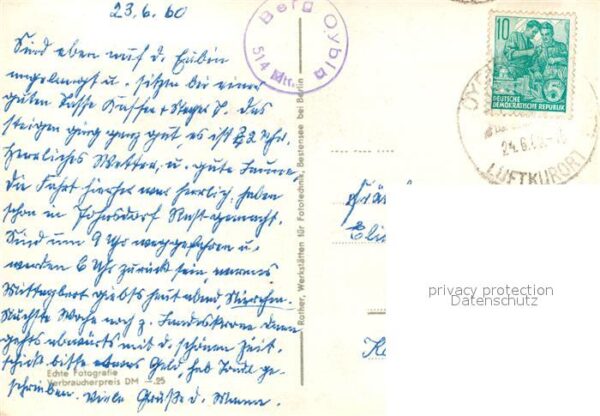 23.6.60
Sind eben auf d. Oybin
angelangt u. sitzen bei einer
guten Tasse Kaffee + Das
steigen ging ganz gut, es ist 2 Uhr.
Herrliches Wetter, u. gute Laune,
Die Fahrt hierher war herrlich, haben
schon in Johnsdorf Rast gemacht.
Sind um 9 Uhr weggefahren u.
werden 6 Uhr zurück sein, warmes
Mittagbrot giebts heut abend
Nächste Woche noch z. Landeskrone dann
gehts abwärts mit d. schönen Zeit.
schickt bitte etwas Geld, hab ge-
schrieben. Viele Grüße d. Mama.
Echte Fotografie
Verbraucherpreis DM —.25
Rather, Werkstätten für Fototechnik, Bestensee bei Berlin
Berg Oybin
514 Mtr.
10
DEUTSCHE
DEMOKRATISCHE REPUBLIK
24.6.
LUFTKURORT
privacy protection
Datenschutz